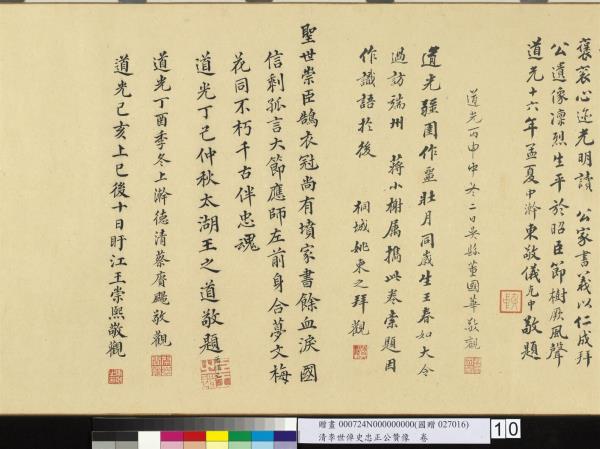 褒袞心迹光明讀　公家書義以仁成拜
公遺像凛烈生平於昭臣節樹厥風聲
道光十六年孟夏中澣東敬儀光中敬題
道光丙申中冬二日吳縣董國華敬觀
道光彊圉作噩壯月同歲生王春如大令
過訪瑞州　蔣小榭屬攜此卷索題因
作識語於後　桐城姚柬之拜觀
聖世崇臣鵠衣冠尚有墳家書餘血淚國
信剩孤言大節應師左前身合夢文梅
花同不朽千古伴忠魂
道光丁酉仲秋太湖王之道敬題
道光丁酉季冬上澣德清蔡賡颺敬觀
道光己亥上巳後十日盱江王崇熙敬觀
贈畫 000724N000000000(國贈 027016)
清李世倬史忠正公贊像　卷
10